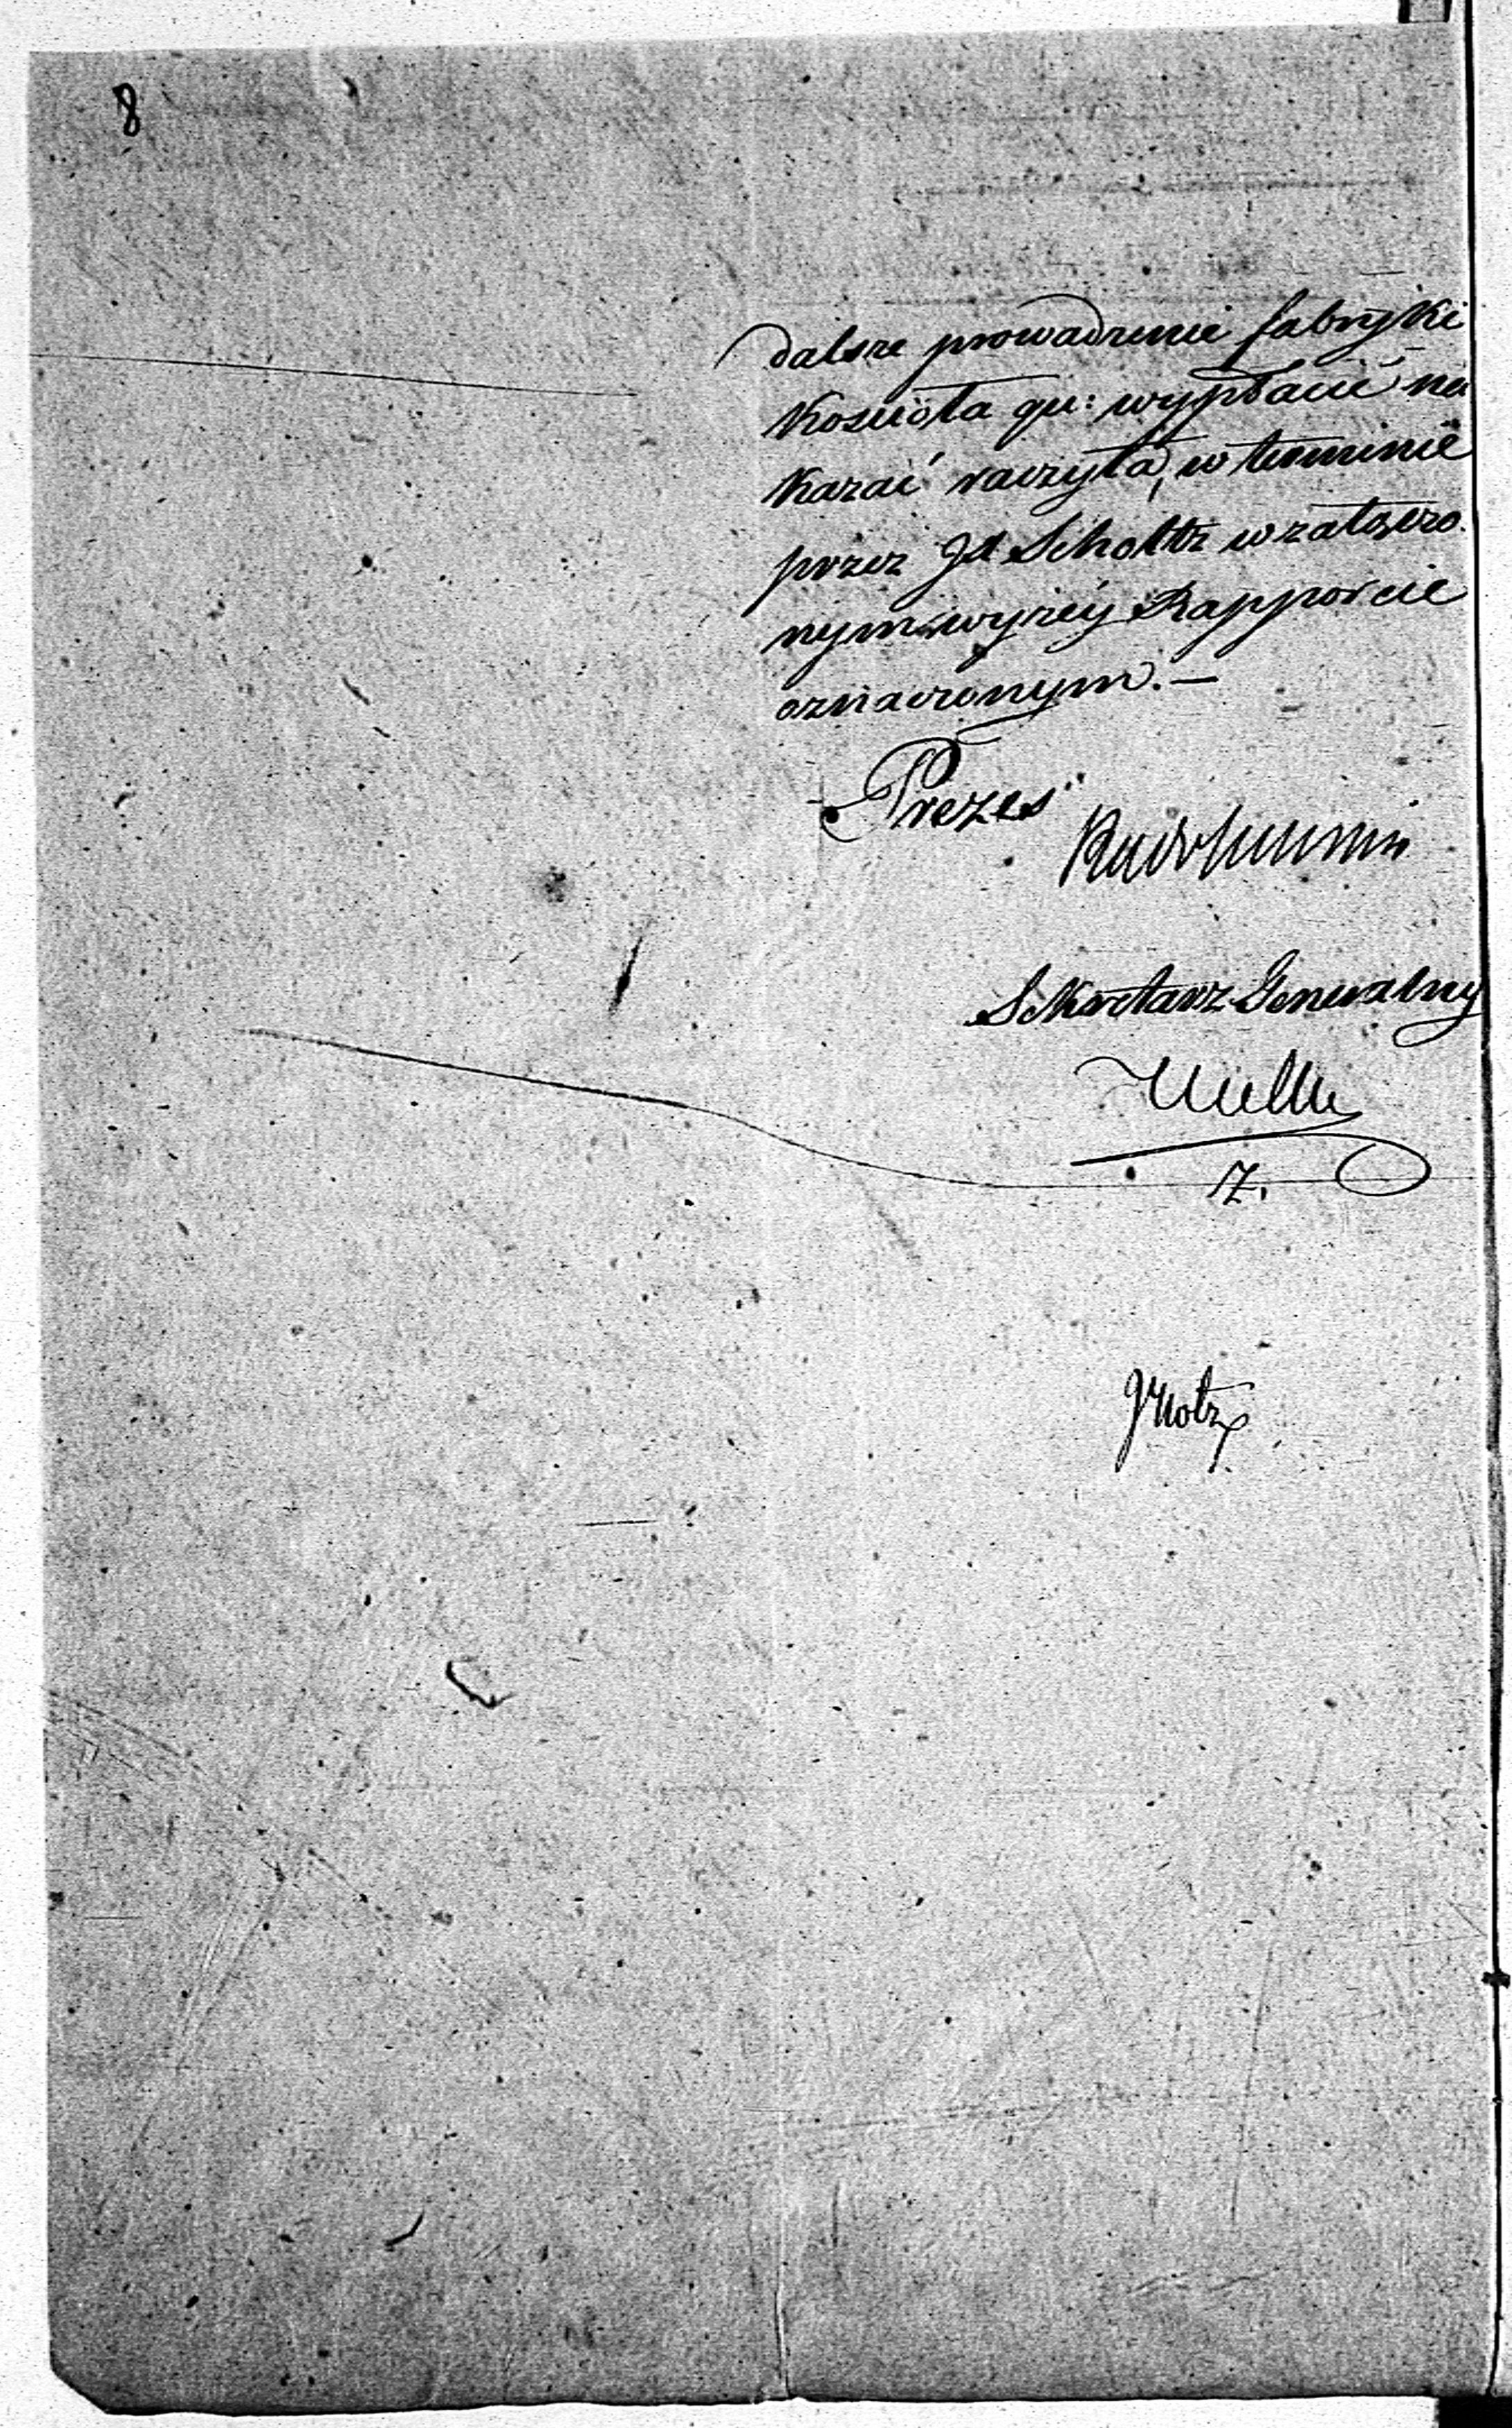 8
dalsze prowadzenie fabryki
Kościoła qu: wypłacić na
kazać raczyła, w terminie
przez JP Scholtz w załączo
nym wyżéy Rapporcie
oznaczonym. —
Prezes
Sekretarz Generalny